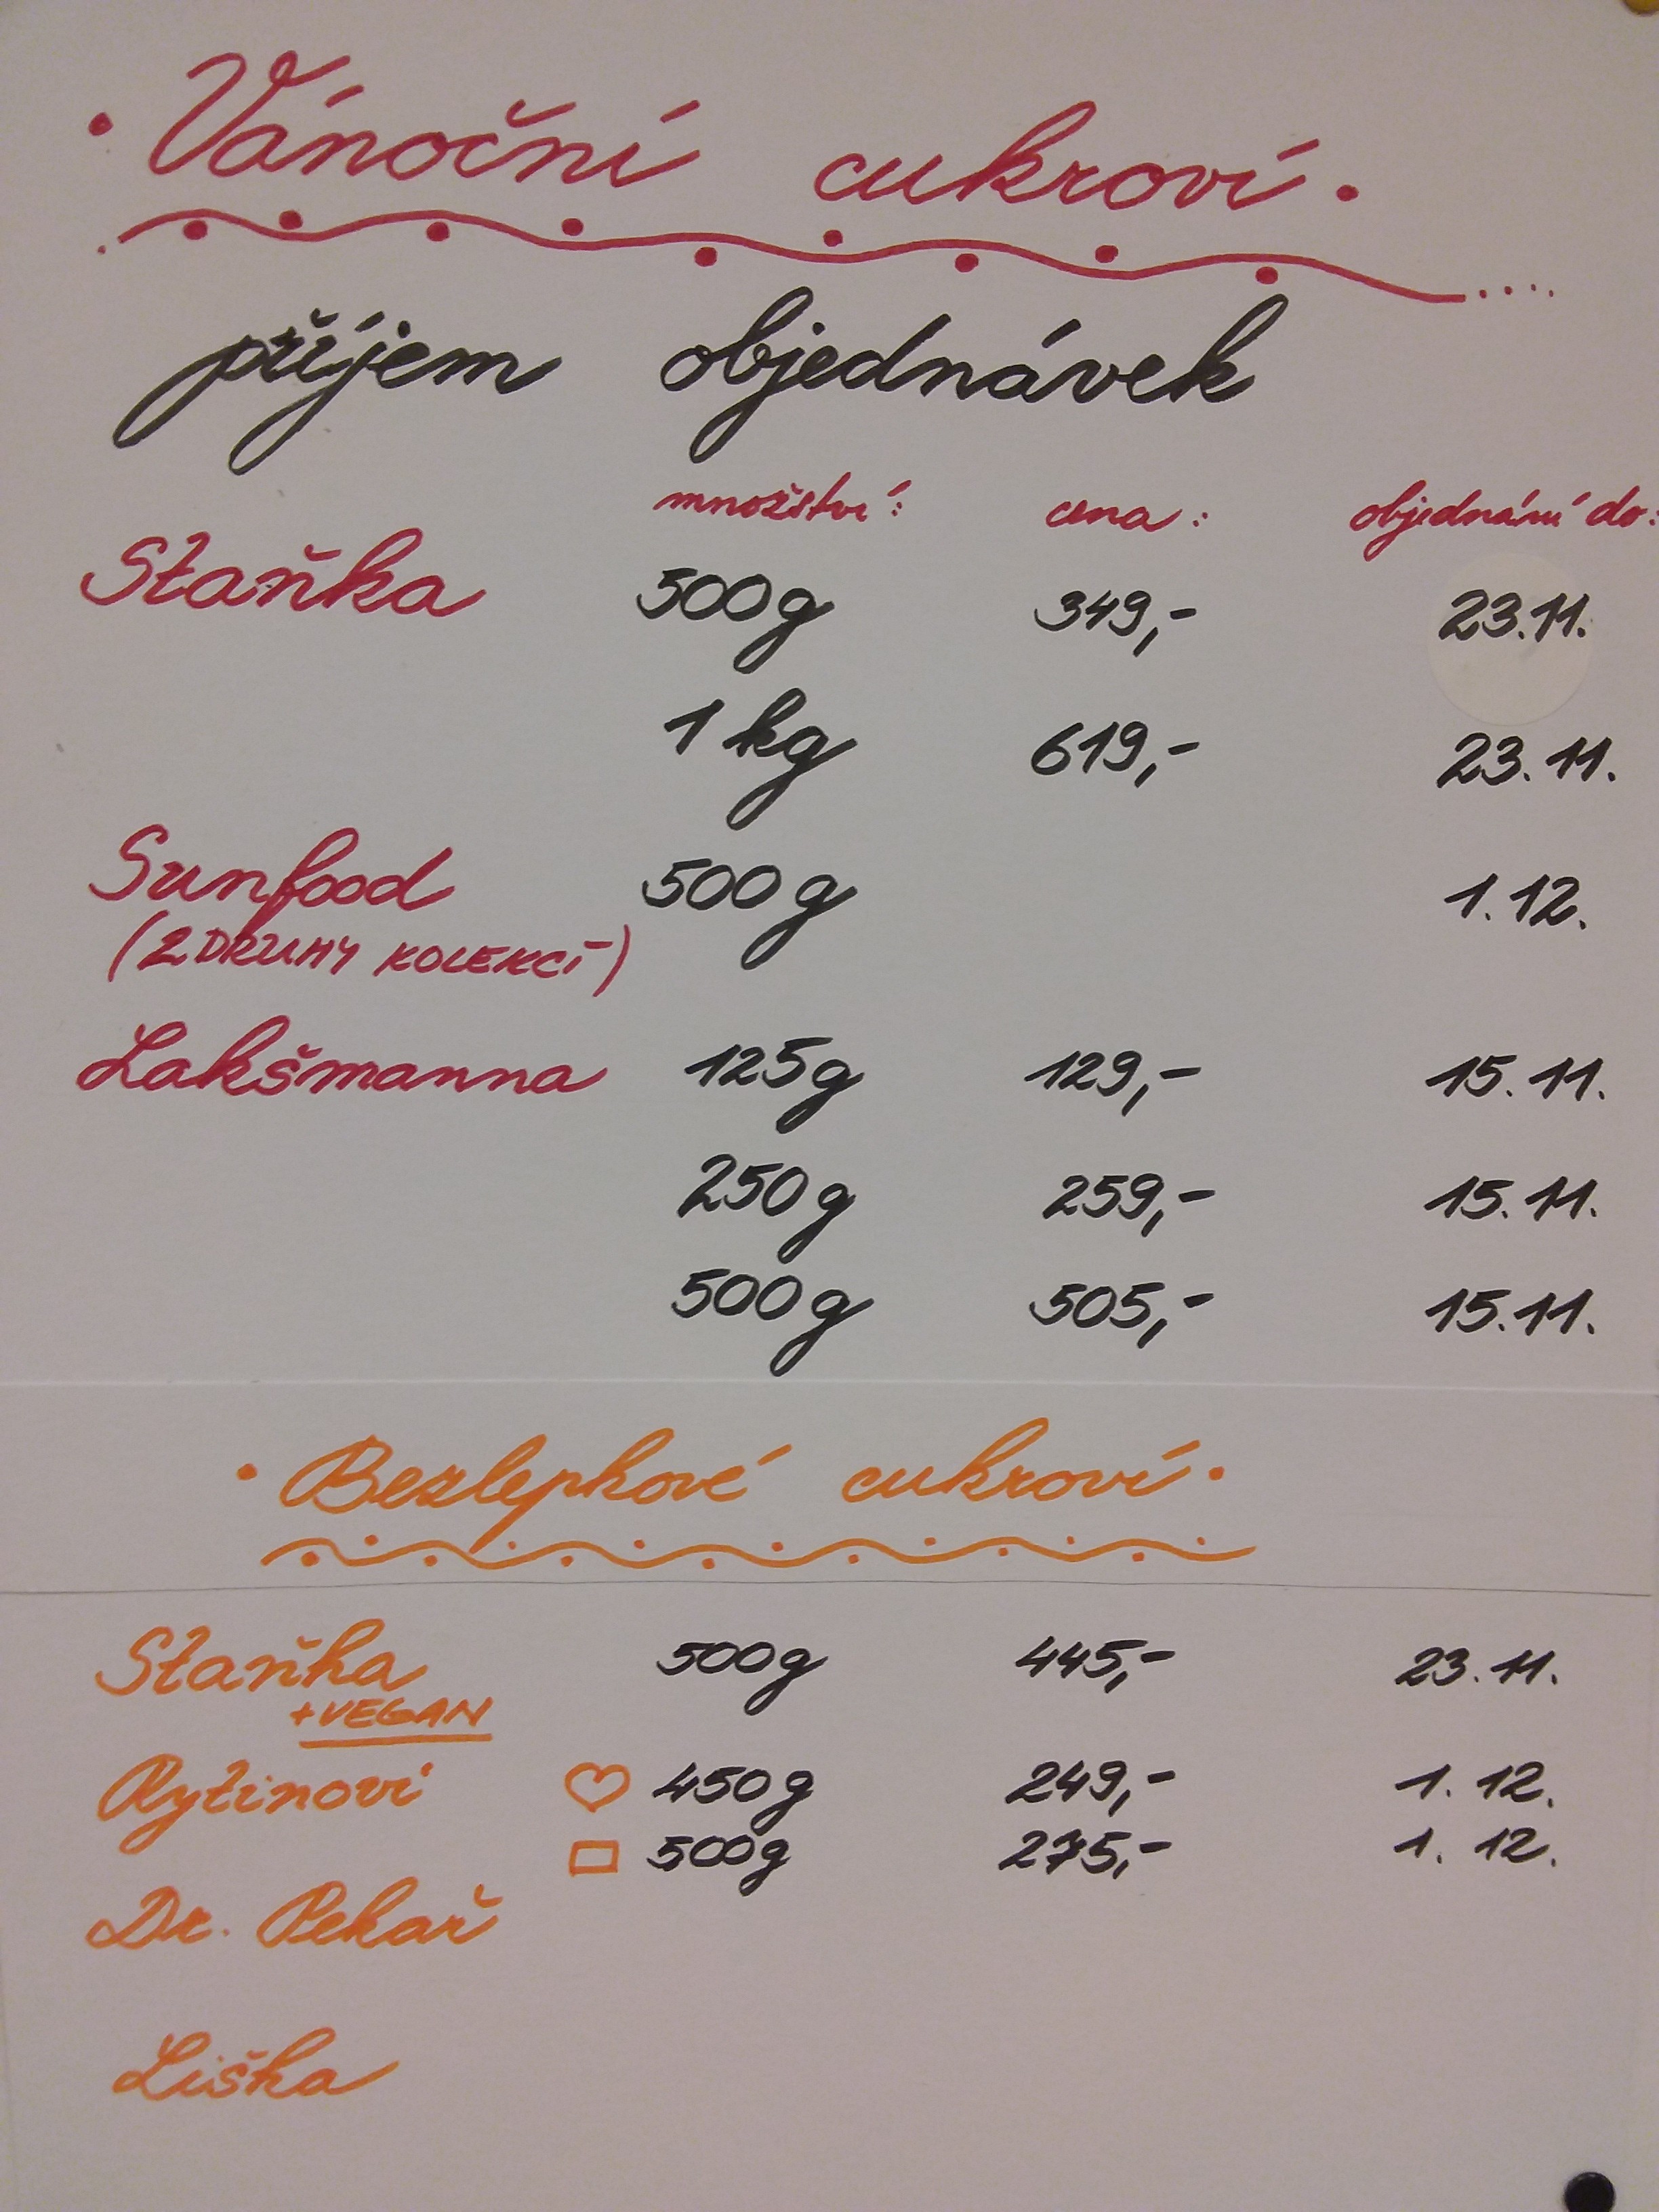 Vánoční cukroví
příjem objednávek
množství: cena: objednání do:
Staňka 500g 349,- 23.11.
1 kg 619,- 23.11.
Sunfood 500g 1.12.
(2 DRUHY KOLEKCÍ)
Lakšmanna 125g 129,- 15.11.
250g 259,- 15.11.
500g 505,- 15.11.
Bezlepkové cukroví
Staňka 500g 445,- 23.11.
+VEGAN
Rytinovi 450g 249,- 1.12.
500g 275,- 1.12.
Dr. Pekař
Liška